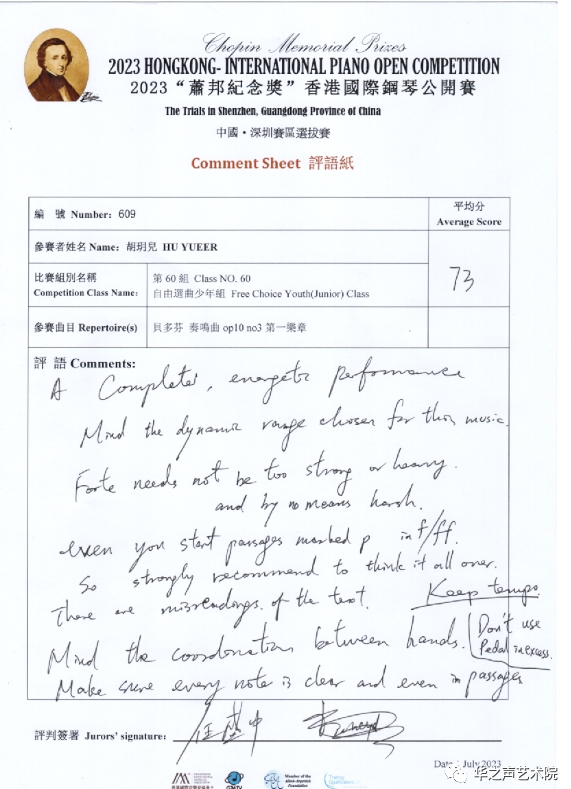 Chopin Memorial Prizes
2023 HONGKONG- INTERNATIONAL PIANO OPEN COMPETITION
2023 “蕭邦紀念獎” 香港國際鋼琴公開賽
The Trials in Shenzhen, Guangdong Province of China
中國・深圳賽區選拔賽
Comment Sheet 評語紙
編 號 Number: 609
平均分
Average Score
73
參賽者姓名 Name: 胡玥兒 HU YUEER
比賽組別名稱
Competition Class Name:
第 60 組 Class NO. 60
自由選曲少年組 Free Choice Youth(Junior) Class
參賽曲目 Repertoire(s)
貝多芬 奏鳴曲 op10 no3 第一樂章
評 語 Comments:
A Complete, energetic performance
Mind the dynamic range chosen for this music.
Forte needs not be too strong or heavy.
and by no means harsh.
even you start passages marked p in f/ff.
So strongly recommend to think it all over.
There are misreadings of the text. Keep tempo.
Mind the coordination between hands. Don't use
Pedal in excess.
Make sure every note is clear and even in passages
評判簽署 Jurors' signature:
Date: July 2023
Member of the
Foundation
华之声艺术院